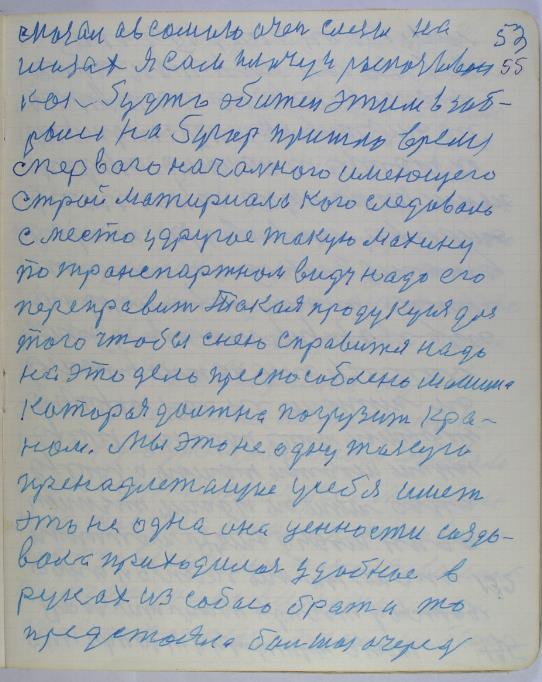 53
55
на
я сам плачу и
как будто обижен этим в заб-
на бугор пришло время
с первого начального имеющего
строй материаль кого следоваль
с место у другое такую махину
по транспартном виду надо его
переправит Такая продукция для
того чтобы снею справится надь
на это дель преспособлень машина
Которая должна погрузит Кра-
ном. Мы это не одну такую
пренадлежащие усебя имет
это не одна она ценности создь-
приходился удобное в
руках из собою брат а то
предстояла большая очеред